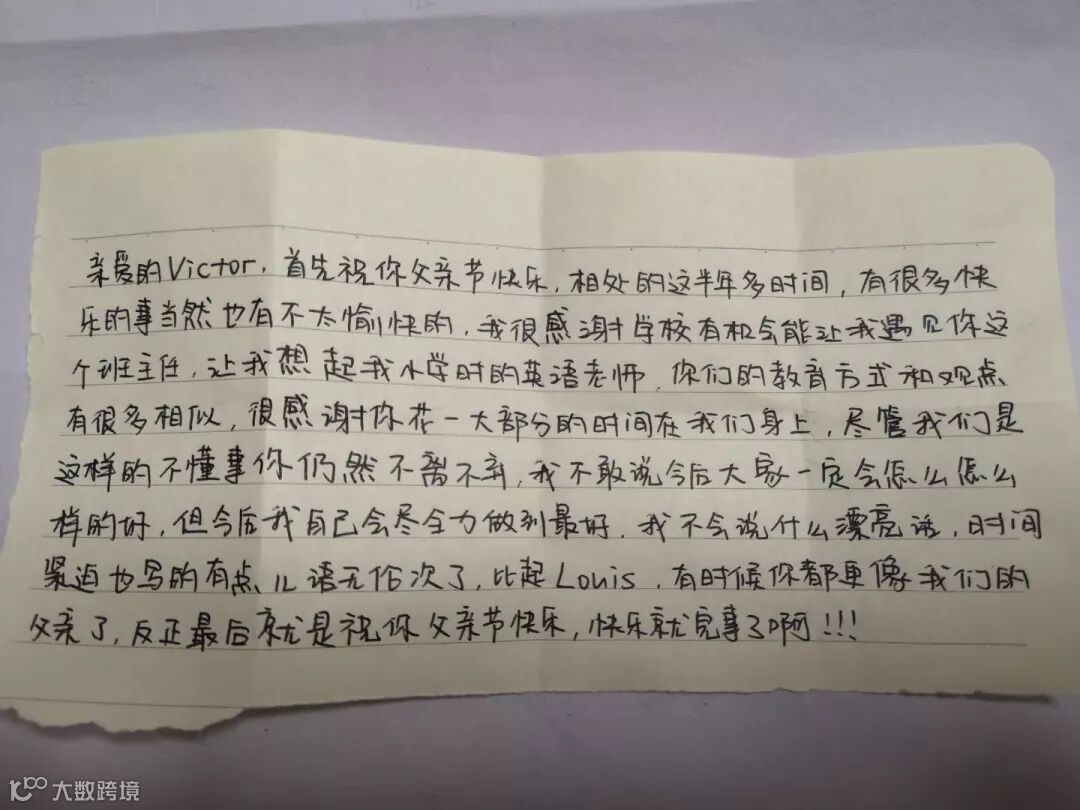 亲爱的Victor，首先祝你父亲节快乐，相处的这半年多时间，有很多快
乐的事当然也有不太愉快的，我很感谢学校有机会能让我遇见你这
个班主任，让我想起我小学时的英语老师，你们的教育方式和观点
有很多相似，很感谢你花一大部分的时间在我们身上，尽管我们是
这样的不懂事你仍然不离不弃，我不敢说今后大家一定会怎么怎么
样的好，但今后我自己会尽全力做到最好，我不会说什么漂亮话，时间
紧迫也写的有点儿语无伦次了，比起Louis，有时候你都更像我们的
父亲了，反正最后就是祝你父亲节快乐，快乐就完事了啊！！！
大数跨境